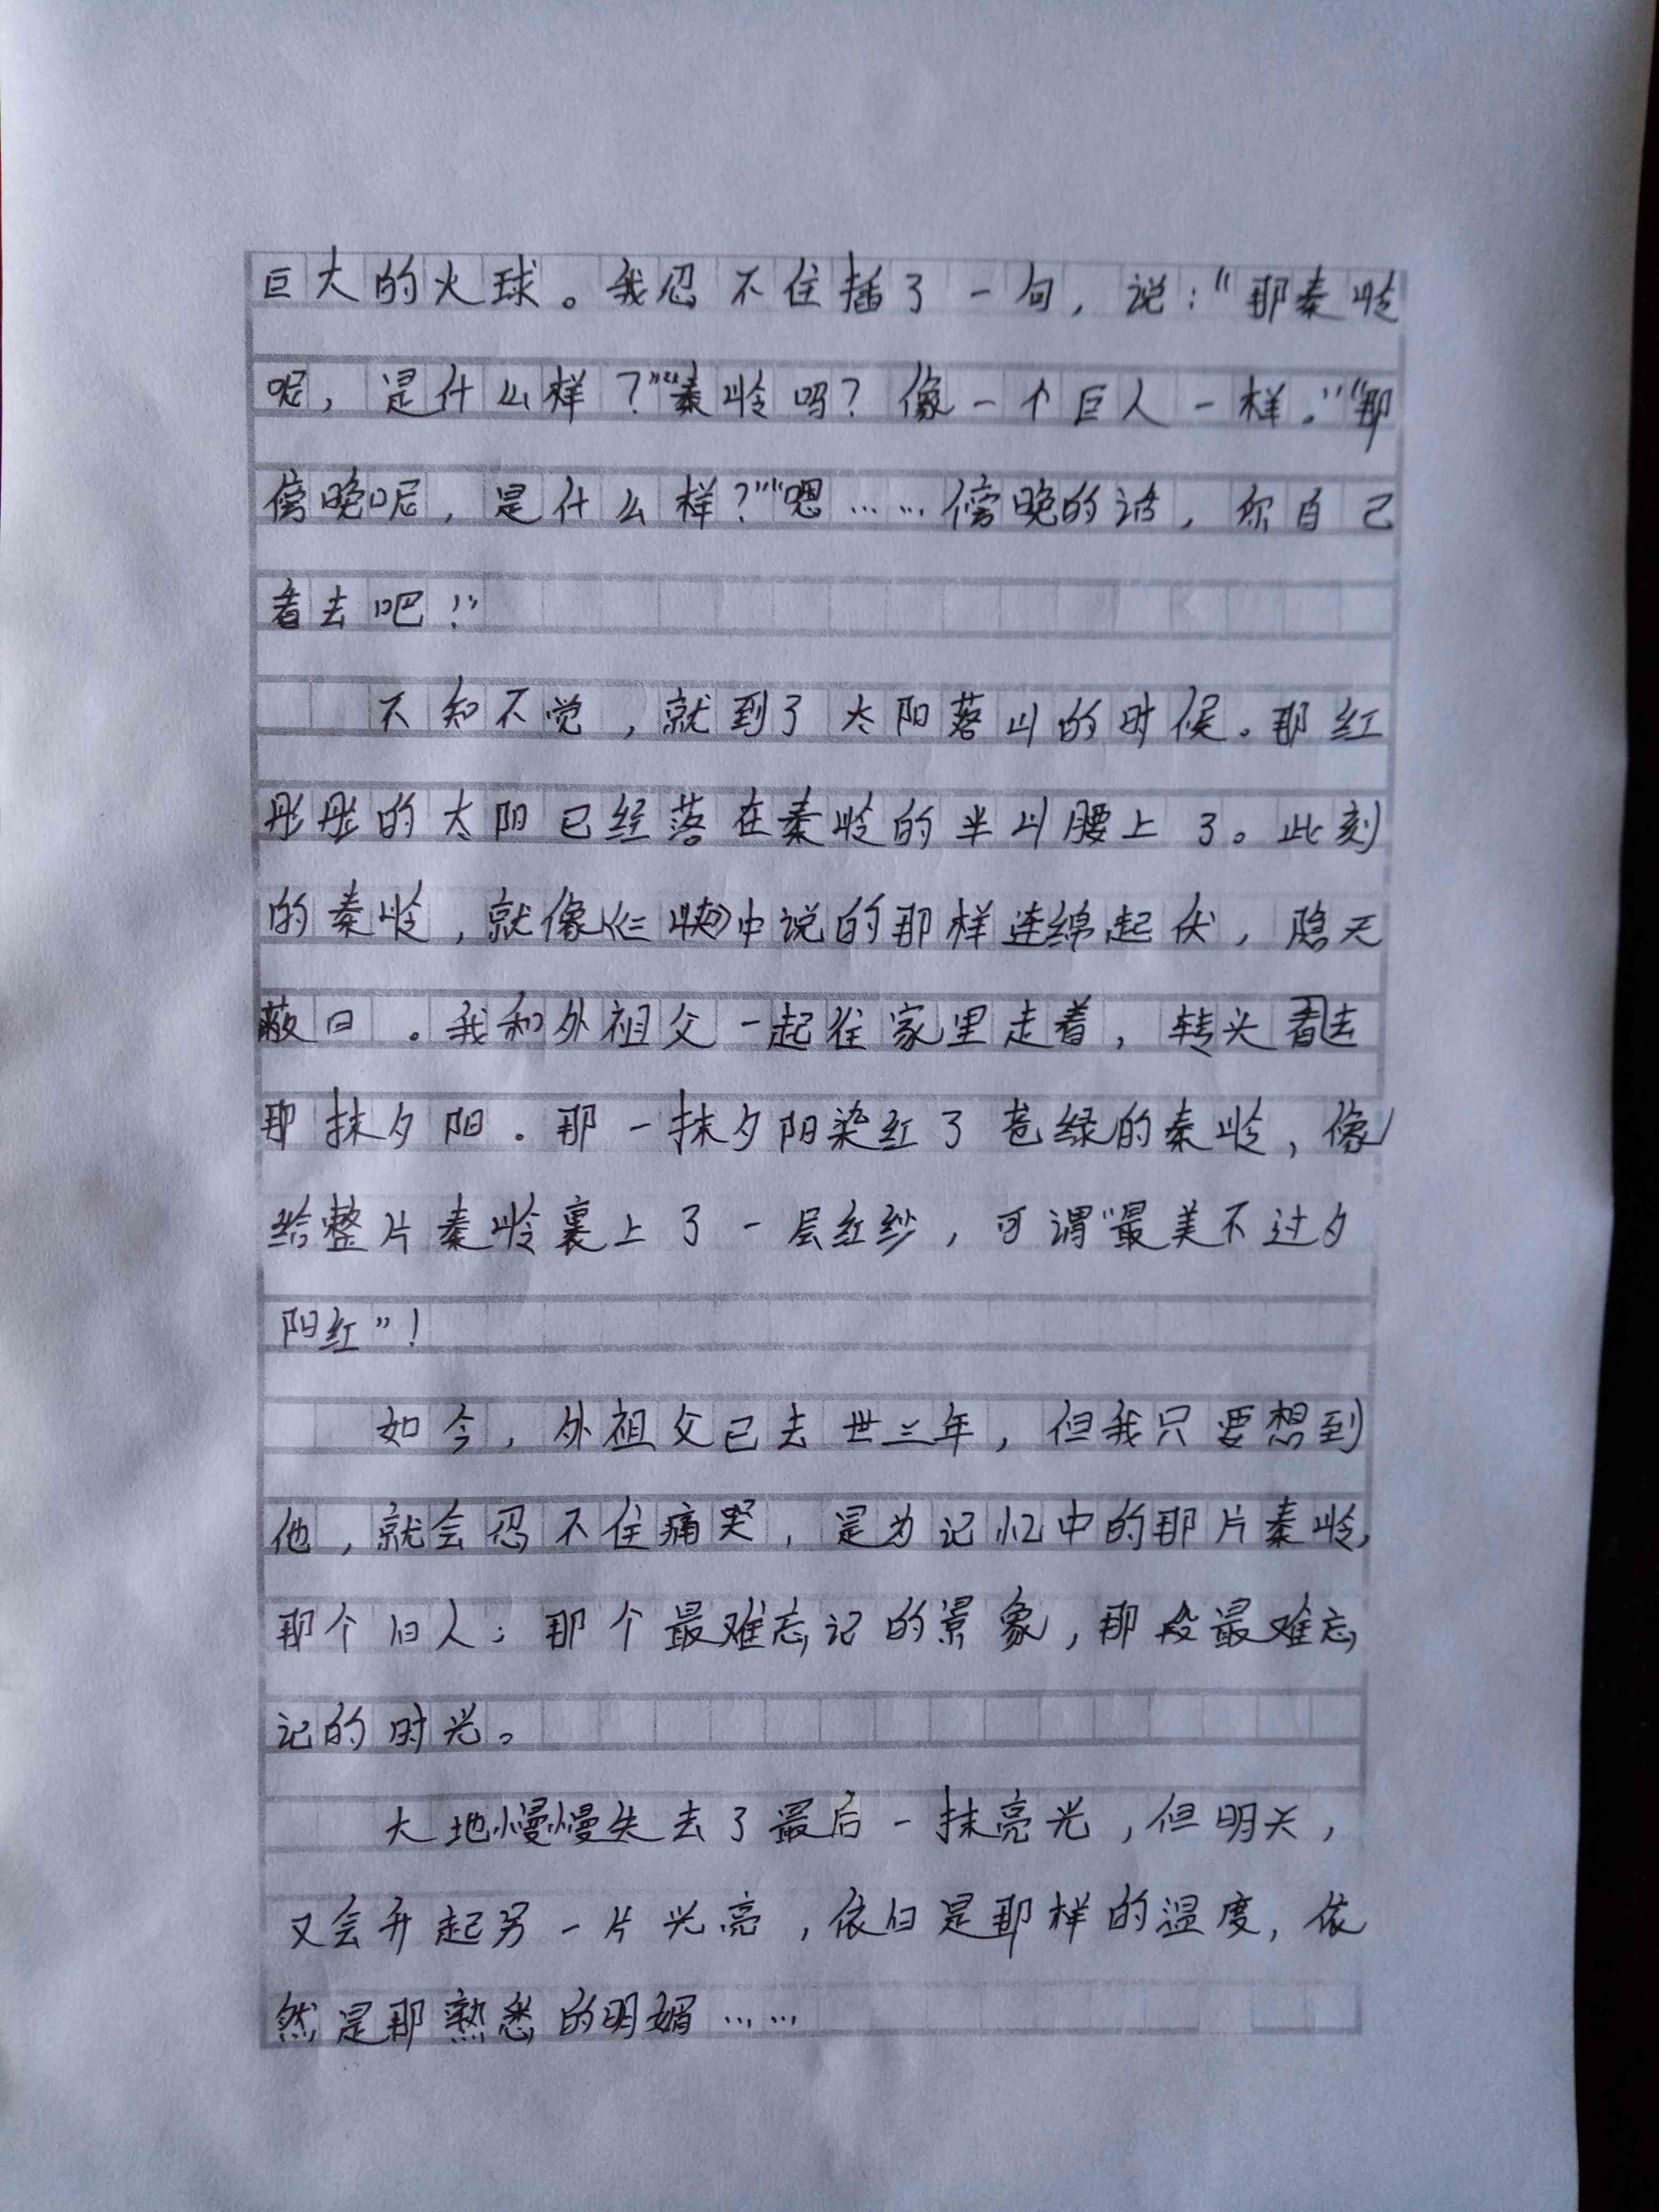 巨大的火球。我忍不住插了一句，说：“那秦岭
呢，是什么样？”“秦岭吗？像一个巨人一样。”“那
傍晚呢，是什么样？”“嗯……傍晚的话，你自己
看去吧！”
不知不觉，就到了太阳落山的时候。那红
彤彤的太阳已经落在秦岭的半山腰上了。此刻
的秦岭，就像《三峡》中说的那样连绵起伏，隐天
蔽日。我和外祖父一起往家里走着，转头看去
那抹夕阳。那一抹夕阳染红了苍绿的秦岭，像
给整片秦岭裹上了一层红纱，可谓“最美不过夕
阳红”！
如今，外祖父已去世三年，但我只要想到
他，就会忍不住痛哭，是为记忆中的那片秦岭，
那个旧人；那个最难忘记的景象，那段最难忘
记的时光。
大地慢慢失去了最后一抹亮光，但明天，
又会升起另一片光亮，依旧是那样的温度，依
然是那熟悉的明媚……